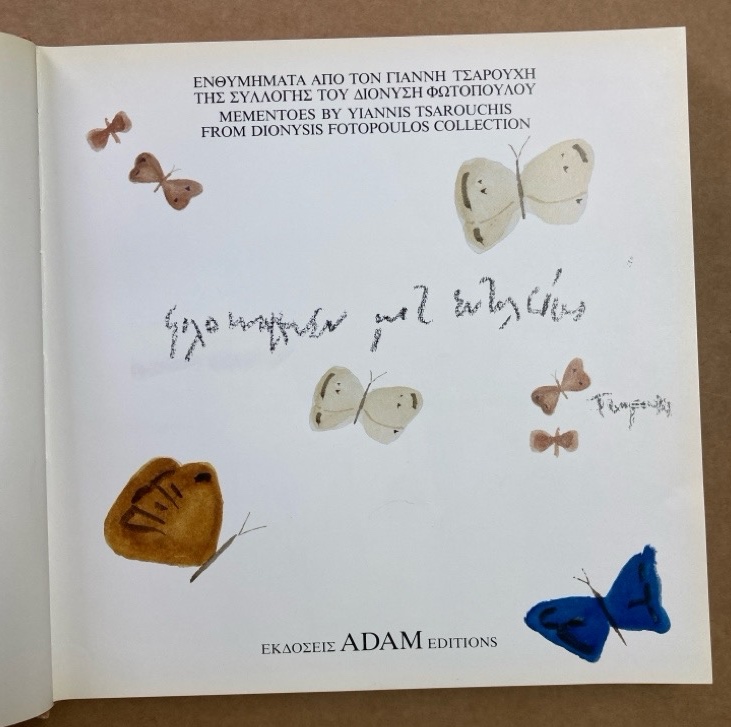 ΕΝΘΥΜΗΜΑΤΑ ΑΠΟ ΤΟΝ ΓΙΑΝΝΗ ΤΣΑΡΟΥΧΗ
ΤΗΣ ΣΥΛΛΟΓΗΣ ΤΟΥ ΔΙΟΝΥΣΗ ΦΩΤΟΠΟΥΛΟΥ
MEMENTOES BY YIANNIS TSAROUCHIS
FROM DIONYSIS FOTOPOULOS COLLECTION
ΕΚΔΟΣΕΙΣ ADAM EDITIONS